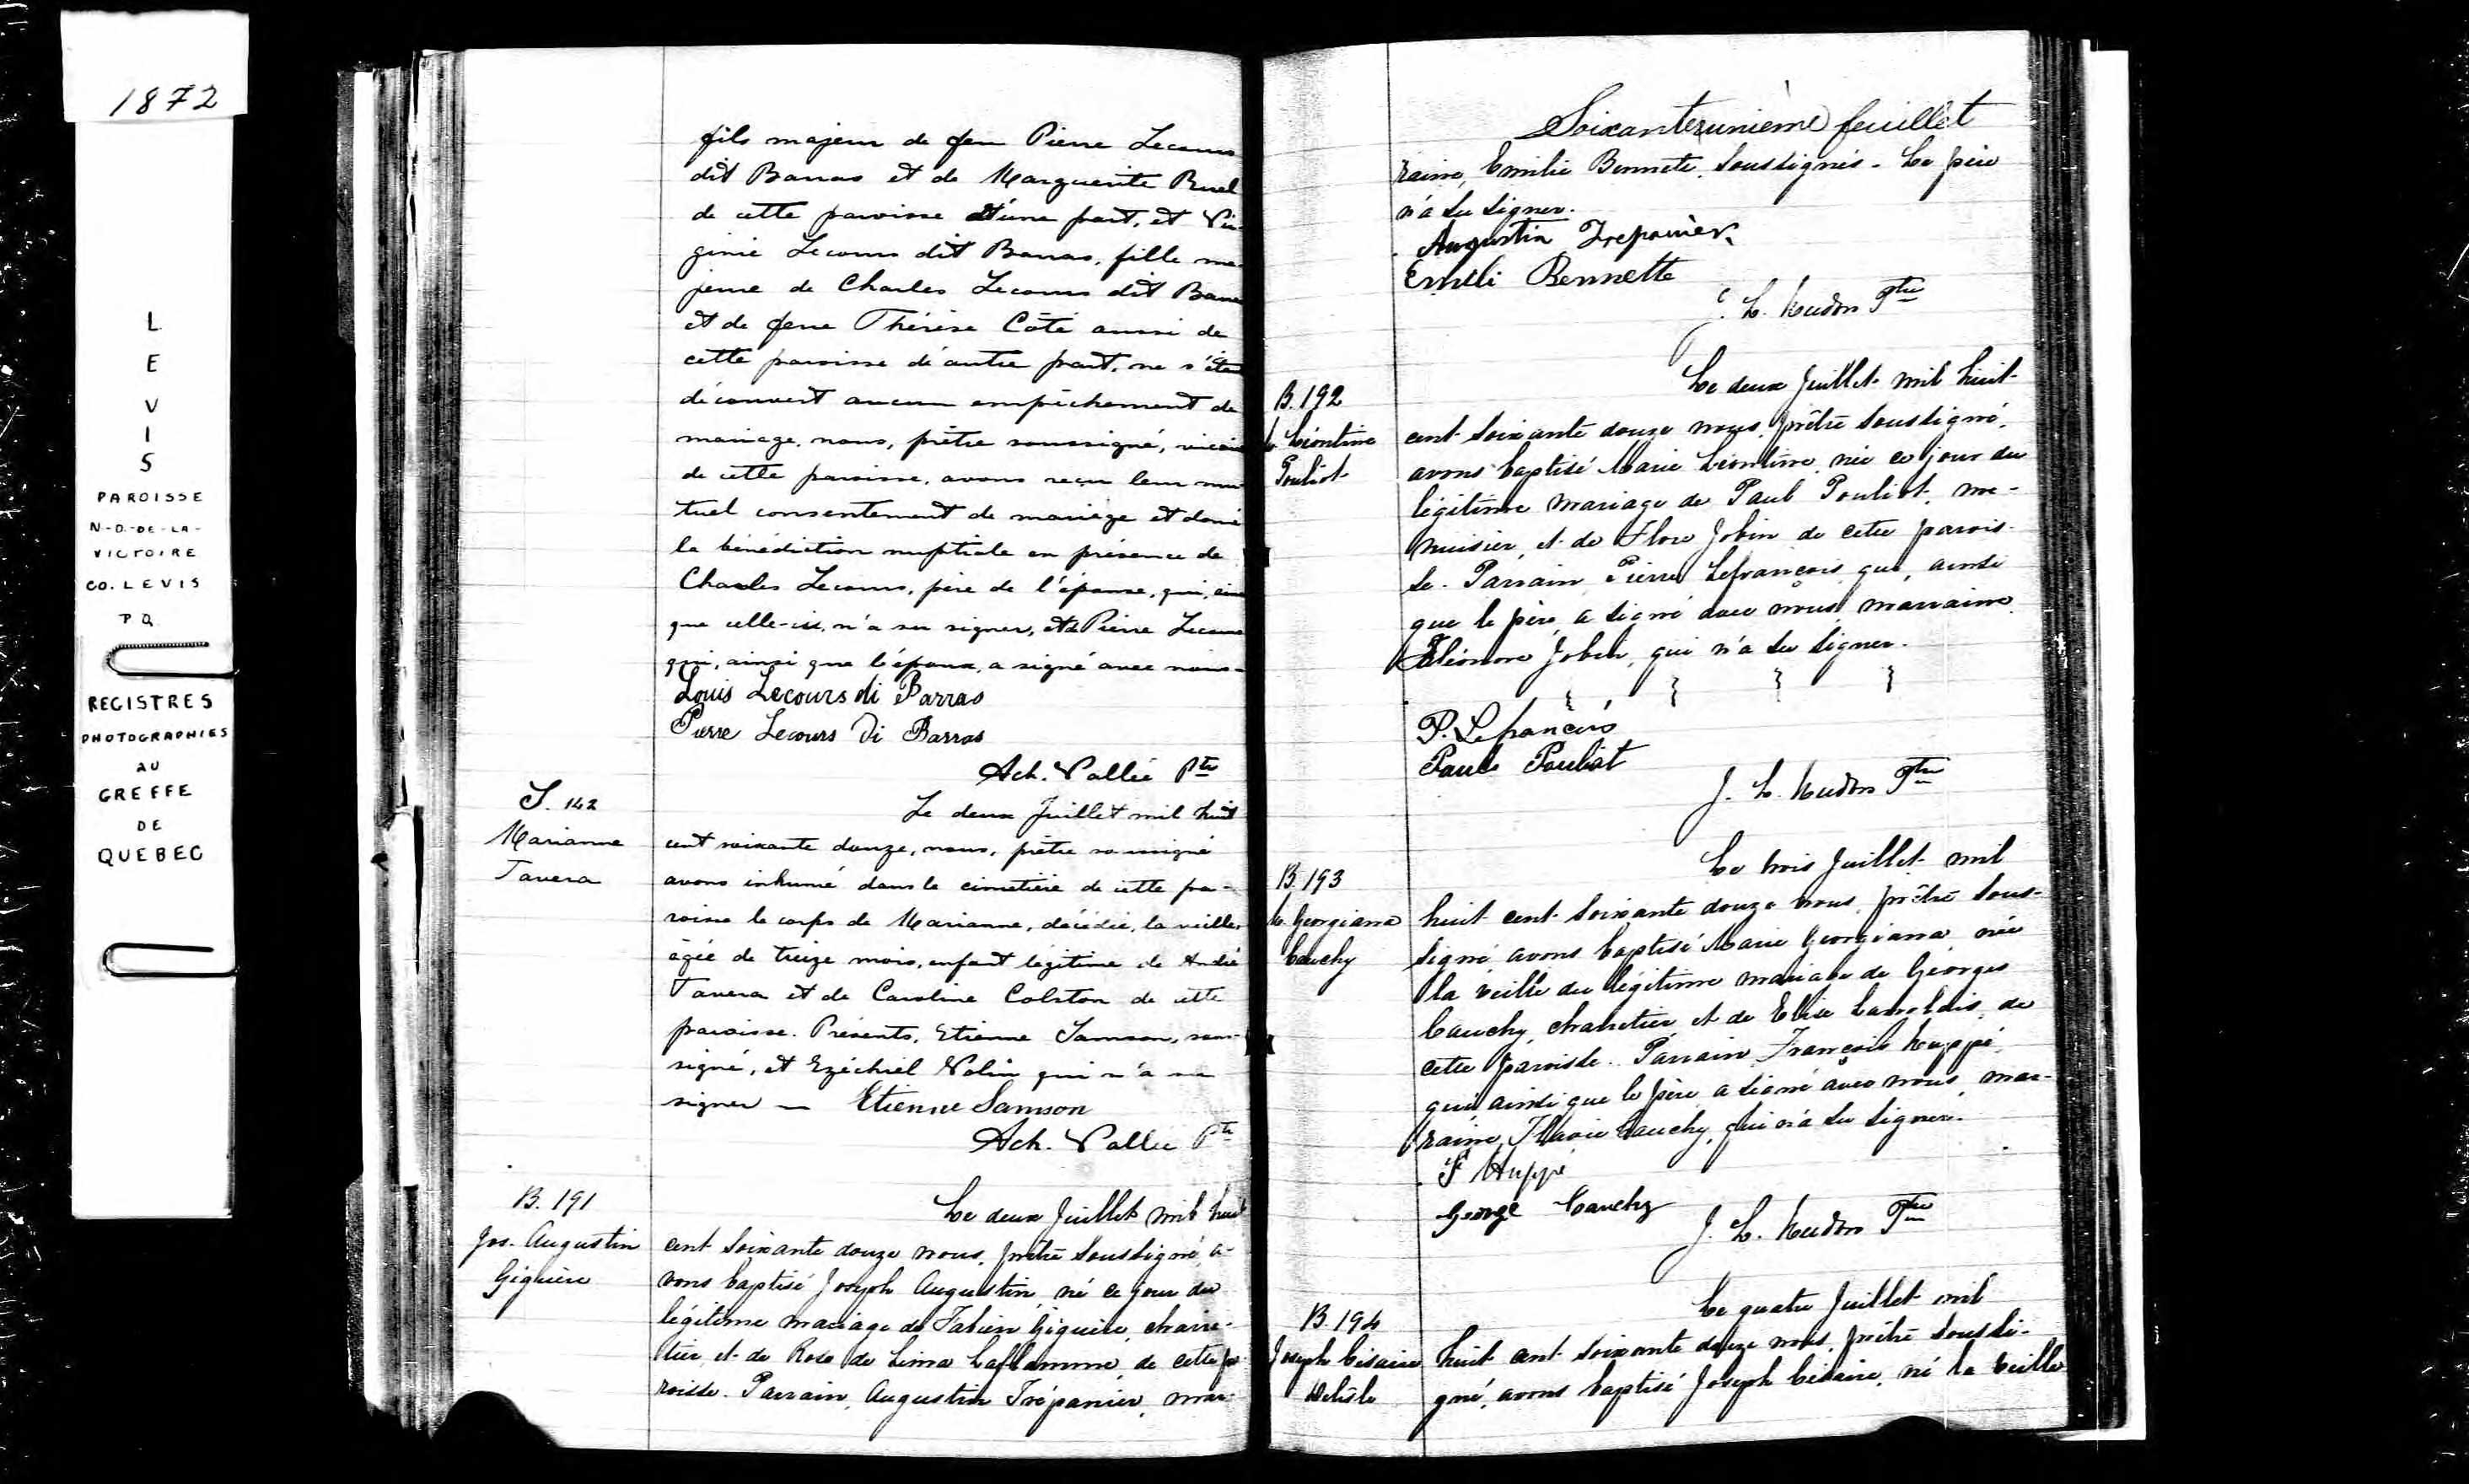 1872
LEVIS
PAROISSE
N-D-DE-LA-
VICTOIRE
CO. LEVIS
PQ
REGISTRES
PHOTOGRAPHIES
AU
GREFFE
DE
QUEBEC
fils majeur de feu Pierre Lecours
dit Barras et de Marguerite Ruel
de cette paroisse d'une part, et Vir-
ginie Lecours dit Barras, fille ma-
jeure de Charles Lecours dit Barras
et de feue Thérèse Côté aussi de
cette paroisse d'autre part, ne s'étant
découvert aucun empêchement de
mariage, nous, prêtre soussigné, vicaire
de cette paroisse, avons reçu leur mu-
tuel consentement de mariage et donné
la bénédiction nuptiale en présence de
Charles Lecours, père de l'épouse, qui, ainsi
que celle-ci, n'a su signer, et Pierre Lecours
qui, ainsi que l'époux, a signé avec nous-
Louis Lecours di Barras
Pierre Lecours Di Barras
Ach. Vallée Ptre
S. 142
Marianne
Tavera
Le deux Juillet mil huit
cent soixante douze, nous, prêtre soussigné
avons inhumé dans le cimetière de cette pa-
roisse le corps de Marianne, décédée, la veille,
âgée de treize mois, enfant légitime de André
Tavera et de Caroline Colston de cette
paroisse. Présents, Etienne Samson, sous-
signé, et Ezéchiel Nolin qui n'a su
signer — Etienne Samson
Ach. Vallée Ptre
B. 191
Jos. Augustin
Giguère
Le deux Juillet mil huit
cent soixante douze nous, prêtre soussigné a-
vons baptisé Joseph Augustin, né ce jour du
légitime mariage de Fabien Giguère, charre-
tier, et de Rose de Lima Laflamme, de cette pa-
roisse. Parrain, Augustin Trépanier, mar-
Soixante unième feuillet
raine, Emilie Bennete, soussignés. Le père
n'a su signer.
Augustin Trepanier
Emili Bennette
J. L. Hudon Ptre
B. 192
M. Léontine
Pouliot
Le deux Juillet mil huit-
cent soixante douze nous, prêtre soussigné,
avons baptisé Marie Léontine, née ce jour du
légitime mariage de Paul Pouliot, me-
nuisier, et de Flore Jobin de cette parois-
se. Parrain, Pierre Lefrançois qui, ainsi
que le père, a signé avec nous, marraine
Eléonore Jobin, qui n'a su signer.
P. Lefrancois
Paul Pouliot
J. L. Hudon Ptre
B. 193
M. Georgiana
Cauchy
Le trois Juillet mil
huit cent soixante douze nous, prêtre sous-
signé, avons baptisé Marie Georgiana, née
la veille du légitime mariage de Georges
Cauchy, charretier, et de Elise de
cette paroisse. Parrain, François Huppé,
qui, ainsi que le père, a signé avec nous, mar-
raine, Flavie Cauchy, qui n'a su signer.
F Huppé
George Cauchy
J. L. Hudon Ptre
B. 194
Joseph Césaire
Delisle
Le quatre Juillet mil
huit cent soixante douze nous, prêtre soussi-
gné, avons baptisé Joseph Césaire, né la veille